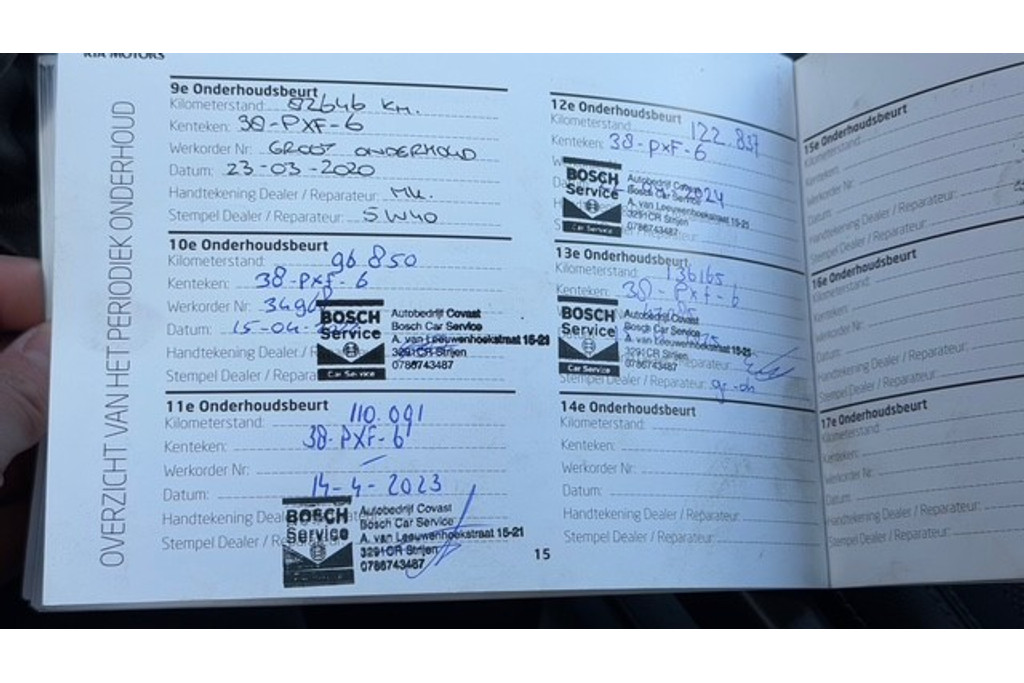 KIA MOTORS
OVERZICHT VAN HET PERIODIEK ONDERHOUD
9e Onderhoudsbeurt
Kilometerstand: 82646 KM.
Kenteken: 38-PXF-6
Werkorder Nr: GROOT ONDERHOUD
Datum: 23-03-2020
Handtekening Dealer / Reparateur: MK.
Stempel Dealer / Reparateur: 5W40
10e Onderhoudsbeurt
Kilometerstand: 96.850
Kenteken: 38-PXF-6
Werkorder Nr:
Datum: 15-04-
Handtekening Dealer /
Stempel Dealer / Repara
BOSCH
Service
Car Service
Autobedrijf Covast
Bosch Car Service
A. van Leeuwenhoekstraat 15-21
3291CR Strijen
0786743487
11e Onderhoudsbeurt
Kilometerstand: 110.091
Kenteken: 38-PXF-6
Werkorder Nr:
Datum: 14-4-2023
Handtekening Deal
Stempel Dealer / Re
BOSCH
Service
Autobedrijf Covast
Bosch Car Service
A. van Leeuwenhoekstraat 15-21
3291CR Strijen
0786743487
15
12e Onderhoudsbeurt
Kilometerstand: 122.837
Kenteken: 38-PXF-6
2024
BOSCH
Service
Car Service
Autobedrijf Covast
Bosch Car Service
A. van Leeuwenhoekstraat 15-21
3291CR Strijen
0786743487
13e Onderhoudsbeurt
Kilometerstand: 136165
Kenteken: 38-PXF-6
BOSCH
Service
Car Service
Autobedrijf Covast
Bosch Car Service
A. van Leeuwenhoekstraat 15-21
3291CR Strijen
0786743487
Stempel Dealer / Reparateur:
14e Onderhoudsbeurt
Kilometerstand:
Kenteken:
Werkorder Nr:
Datum:
Handtekening Dealer / Reparateur:
Stempel Dealer / Reparateur:
15e Onderhoudsbeurt
Kilometerstand:
Kenteken:
Werkorder Nr:
Datum:
Handtekening Dealer / Reparateur:
Stempel Dealer / Reparateur:
16e Onderhoudsbeurt
Kilometerstand:
Kenteken:
Werkorder Nr:
Datum:
Handtekening Dealer / Reparateur:
Stempel Dealer / Reparateur:
17e Onderhoudsbeurt
Kilometerstand:
Kenteken:
Werkorder Nr:
Datum:
Handtekening Dealer / Reparateur:
Stempel Dealer / Reparateur: